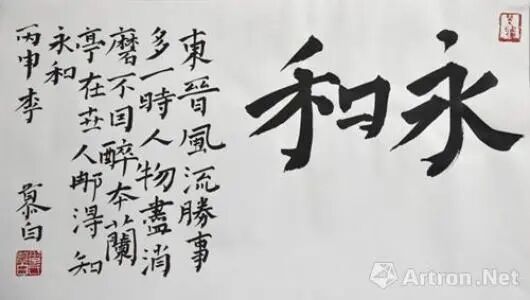 永和
東晉風流勝事
多一時人物盡消
磨不因醉本蘭
亭在世人那得知
永和
丙申李
慕白
Artron.Net